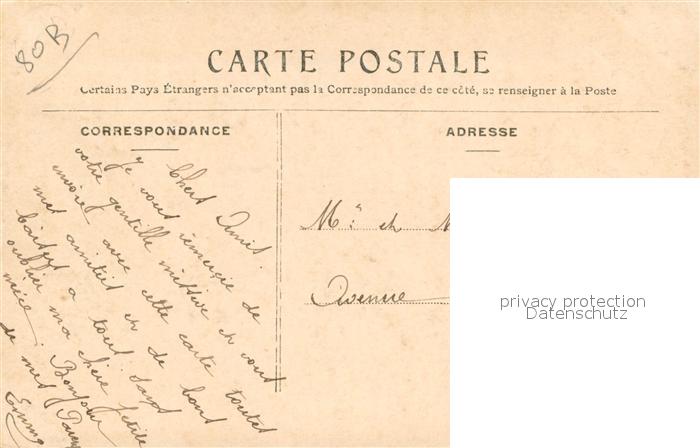 80R
CARTE POSTALE
Certains Pays Étrangers n'acceptent pas la Correspondance de ce côté, se renseigner à la Poste
CORRESPONDANCE
ADRESSE
Chers Amis.
Je vous remercie de
votre gentille missive en vous
envoie avec cette carte toutes
mes amitiés en de bons
baisers a tous sans
oublier ma chère petite
nièce. Bonjour
de mes
Emma
Mr: et M
Avenue
privacy protection
Datenschutz